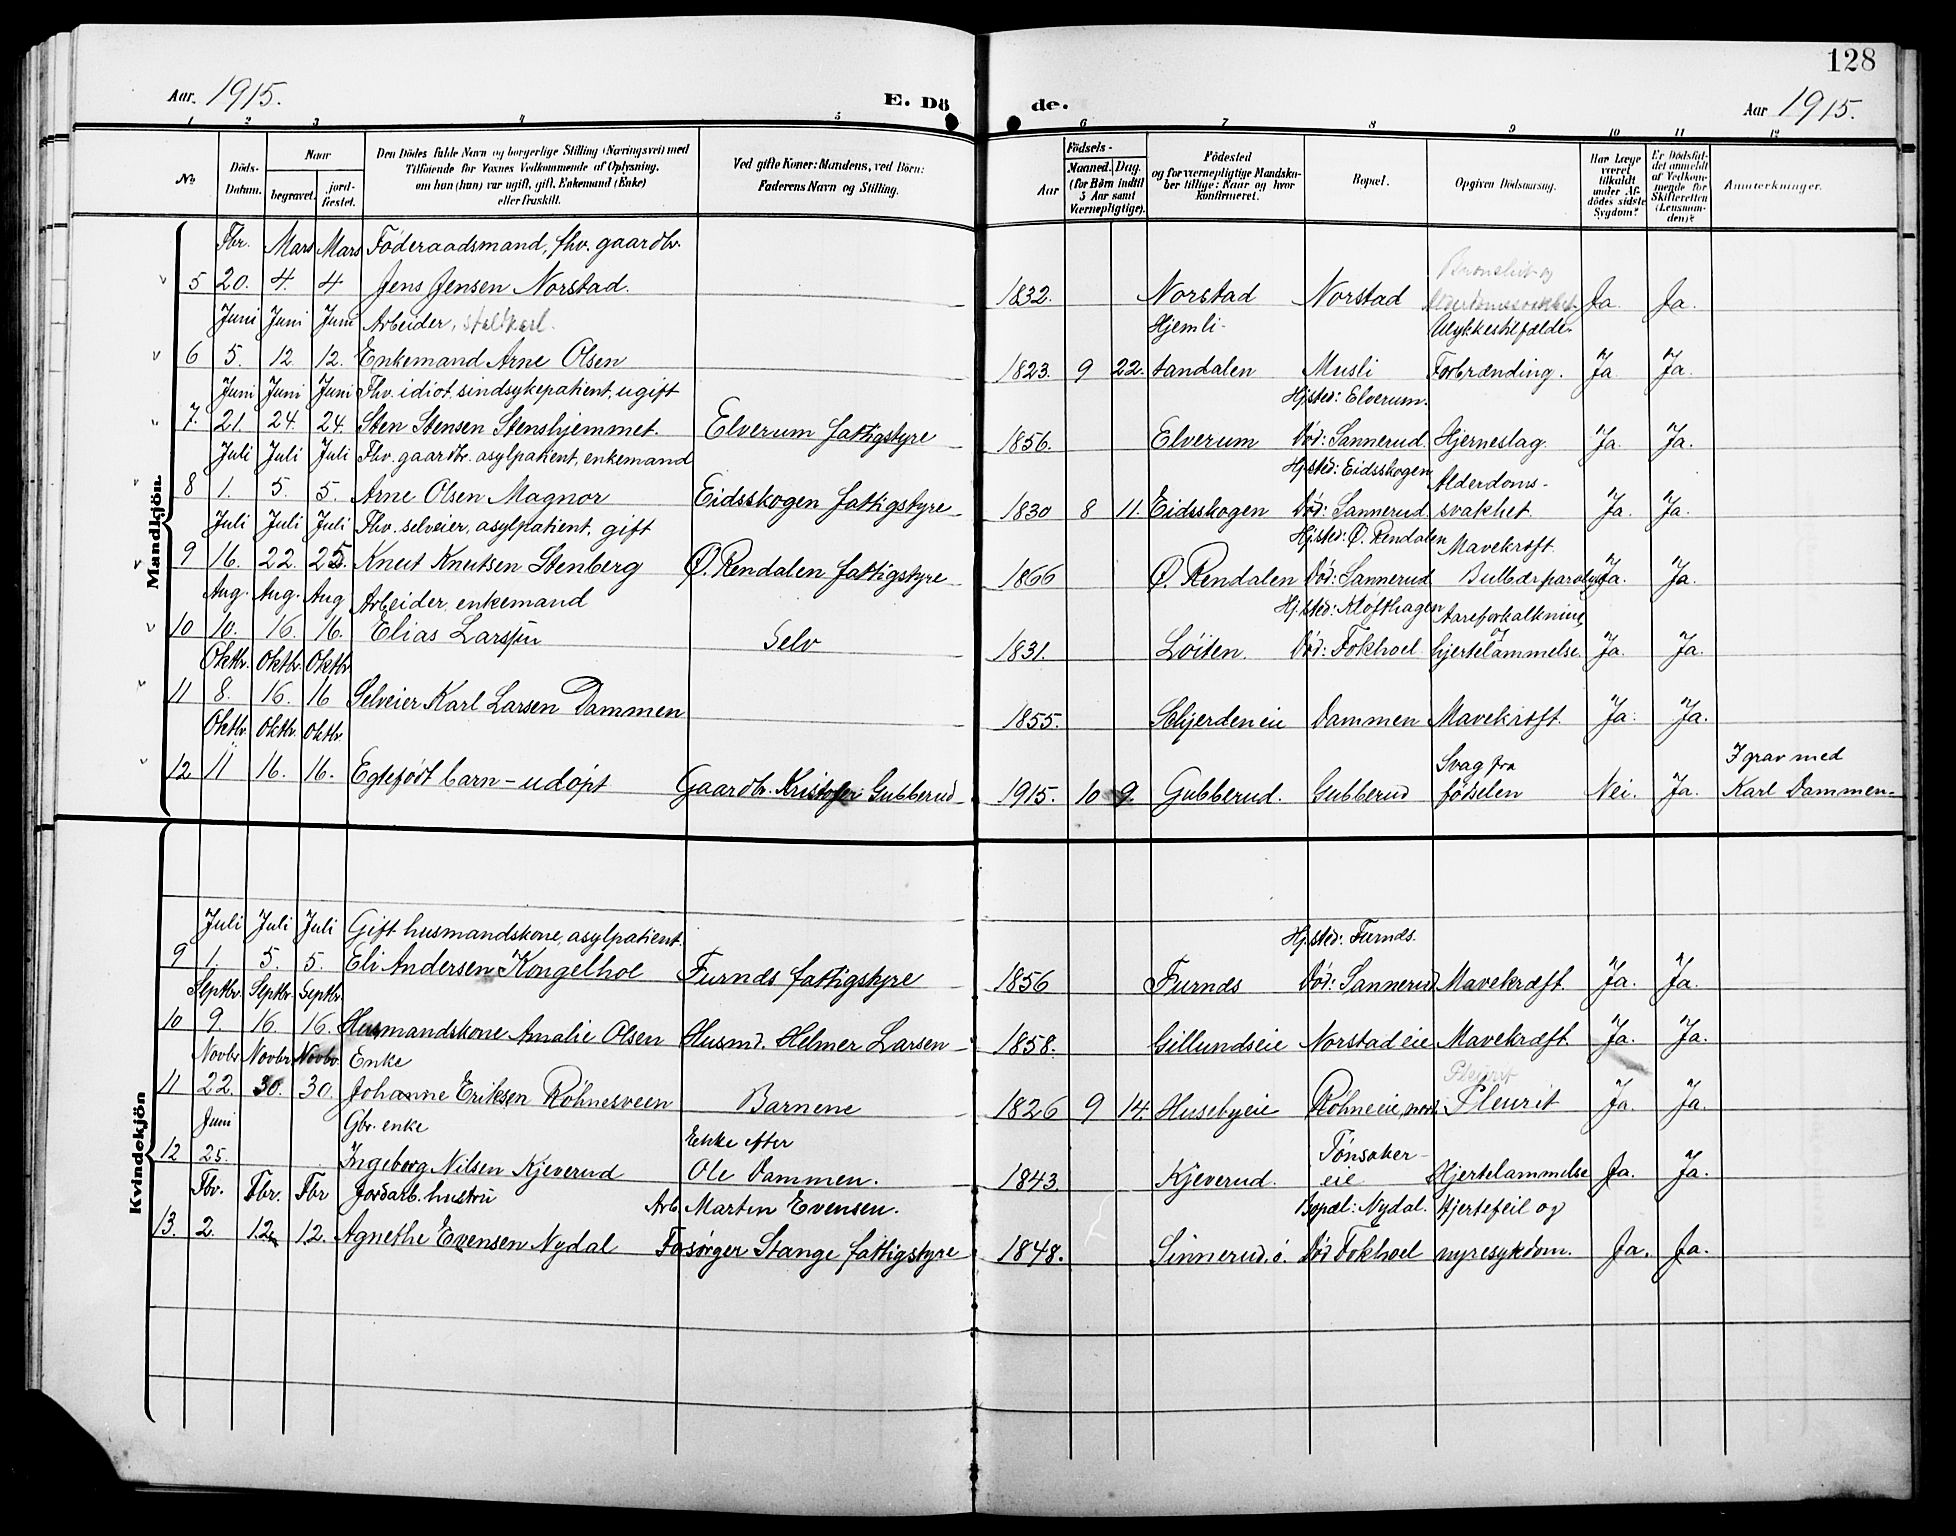 128
Aar. 1915.
E. Dö de.
Aar 1915.
1 2 3 4 5 6 7 8 9 10 11 12
No
Döds-
Datum.
Naar
begravet. jord-
fæstet.
Den Dödes fulde Navn og borgerlige Stilling (Næringsvei) med
Tilföiende for Voxnes Vedkommende af Oplysning,
om han (hun) var ugift, gift, Enkemand (Enke)
eller fraskilt.
Ved gifte Koner: Mandens, ved Börn:
Faderens Navn og Stilling.
Födsels-
Aar
Maaned. Dag.
(for Börn indtil
5 Aar samt
Værnepligtige).
Födested
og for værnepligtige Mandskaber
tillige: Naar og hvor
konfirmeret.
Bopæl.
Opgiven Dödsaarsag.
Har Læge
været
tilkaldt
under Afdödes
sidste
Sygdom?
Er Dödsfaldet
anmeldt
af Vedkommende
for
Skifteretten
(Lensmanden)?
Anmærkninger.
Mandkjön.
Fbr. Mars Mars Föderaadsmand, fhv. gaardbr.
5 20. 4. 4 Jens Jensen Norstad. 1832. Norstad Norstad Ja. Ja.
Juni Juni Juni Arbeider, Hjemli- Ulykkestilfælde.
6 5. 12 12. Enkemand Arne Olsen 1823. 9 22. tandalen Musli Forbrænding. Ja Ja.
Juni Juni Juni Fhv. idiot, sindsykepatient, ugift Hjsted: Elverum.
7. 21. 24. 24. Sten Stensen Stenshjemmet. Elverum fattigstyre 1856. Elverum Död: Sannerud Hjerneslag. Ja. Ja.
Juli Juli Juli Fhv. gaardbr. asylpatient, enkemand Hjsted: Eidsskogen Alderdoms-
8 1. 5. 5. Arne Olsen Magnor Eidsskogen fattigstyre 1830 8 11. Eidsskogen Död: Sannerud svakhet. Ja. Ja.
Juli Juli Juli Fhv. selveier, asylpatient, gift Hjsted: Ö. Rendalen Mavekræft.
9 16. 22. 25. Knut Knutsen Stenberg Ö. Rendalen fattigstyre 1866 Ö. Rendalen Död: Sannerud Bulbærparalyse Ja. Ja.
Aug. Aug. Aug Arbeider, enkemand Hj.sted: Kløfthagen Aareforkalkning
10 10. 16. 16. Elias Larsen Selv 1831. Löiten. Död: Fokhoel og hjertelammelse. Ja. Ja.
Oktbr. Oktbr. Oktbr
11 8. 16. 16 Selveier Karl Larsen Dammen 1855. Skjerdeneie Dammen Mavekræft. Ja. Ja.
Oktbr. Oktbr. Oktbr. Svag fra I grav med
12 11 16. 16. Egtefödt barn - udöpt Gaardbr. Kristofer Gubberud 1915. 10 9. Gubberud. Gubberud födselen Nei. Ja. Karl Dammen.
Kvindekjön
Juli Juli Juli Gift husmandskone, asylpatient. Hj.sted: Furnds.
9 1. 5. 5. Eli Andersen Kongelhoe Furnds fattigstyre 1856 Furnds Död: Sannerud Mavekræft. Ja. Ja.
Septbr. Septbr. Septbr.
10 9. 16 16. Husmandskone Amalie Olsen Husmd. Helmer Larsen 1858. Gillundseie Norstadeie Mavekræft. Ja. Ja.
Novbr. Novbr. Novbr. Enke Pleurit
11 22. 30. 30. Johanne Eriksen Röhnesveen Barnene 1826 9 14. Husebyeie Röhneeie, nord. Pleurit Ja. Ja.
Juni Gbr. enke Enke efter Tönsaker-
12 25. Ingeborg Nilsen Kjeverud Ole Dammen. 1843. Kjeverud. eie Hjertelammelse Ja. Ja.
Fbr. Fbr. Fbr Jordarb. hustru Arb. Marten Evensen. Bopæl: Nydal. Hjertefeil og
13. 2. 12. 12. Agnethe Evensen Nydal Forsörger Stange fattigstyre 1848. Sinnerud, ö. Död Fokhoel nyresykdom. Ja. Ja.